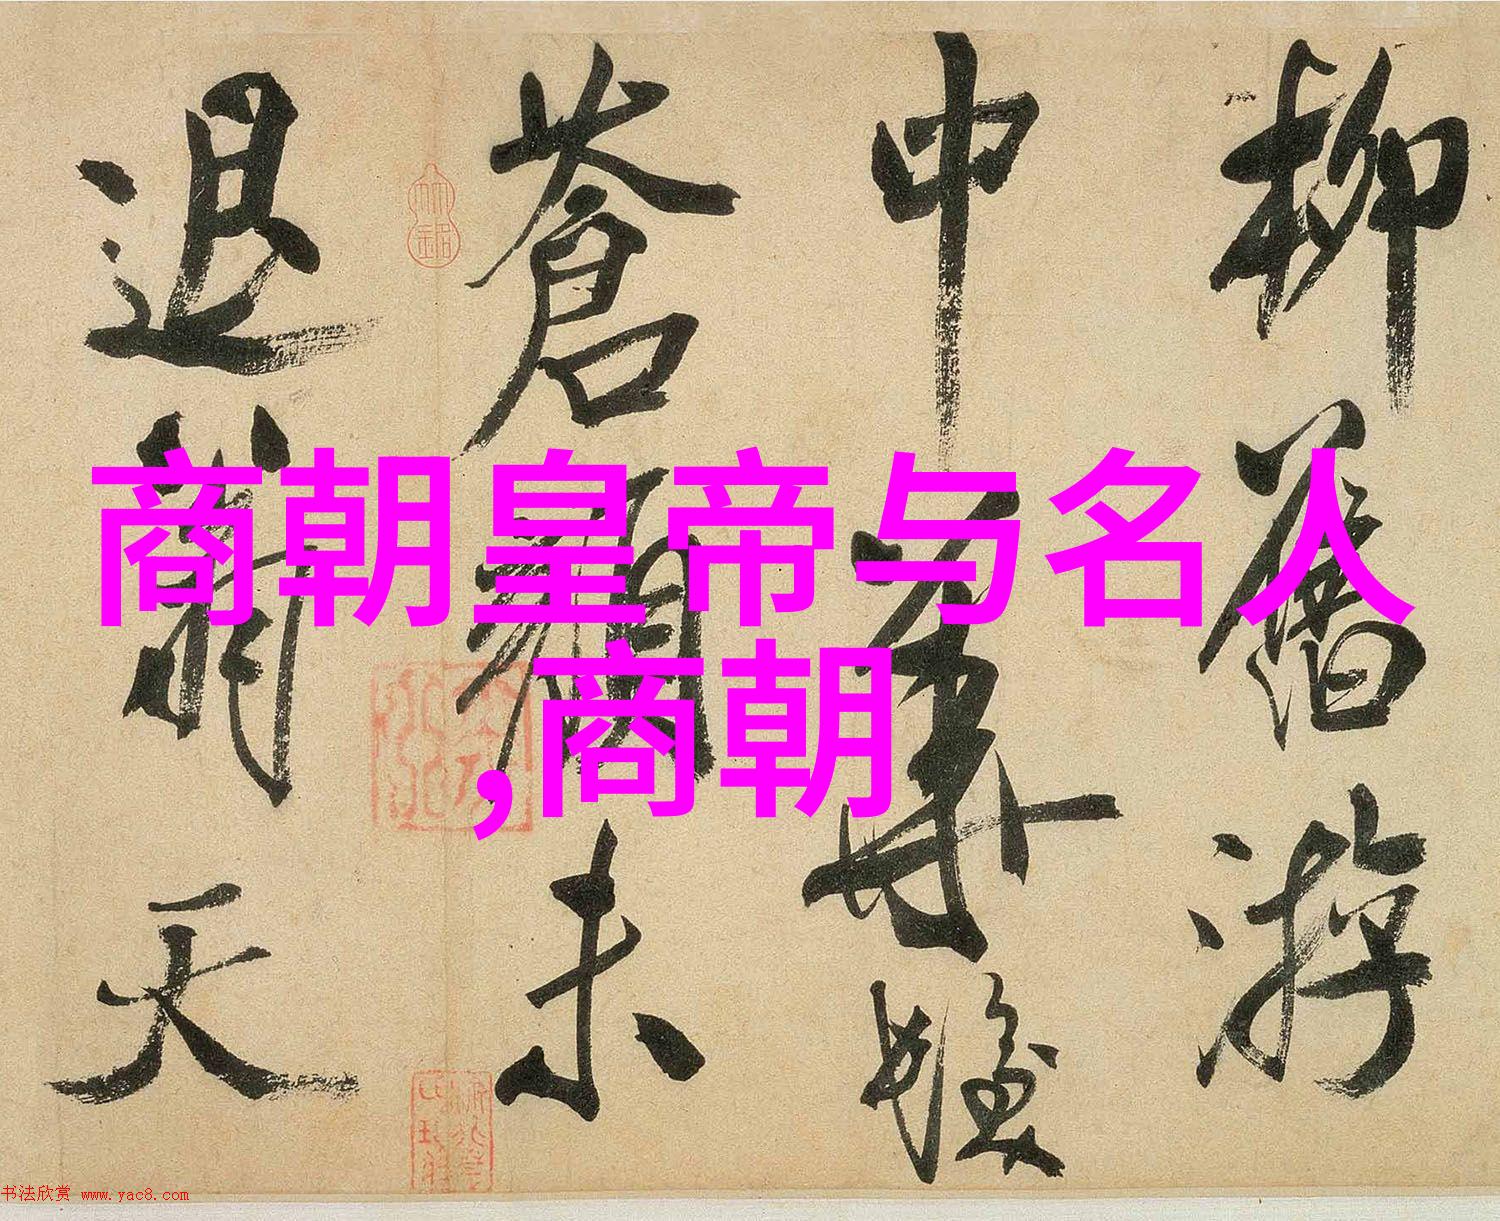 柳舊游
中華髮
蒼顏未
退翁天
商朝皇帝与名人
,商朝
书法欣赏 www.yac8.com